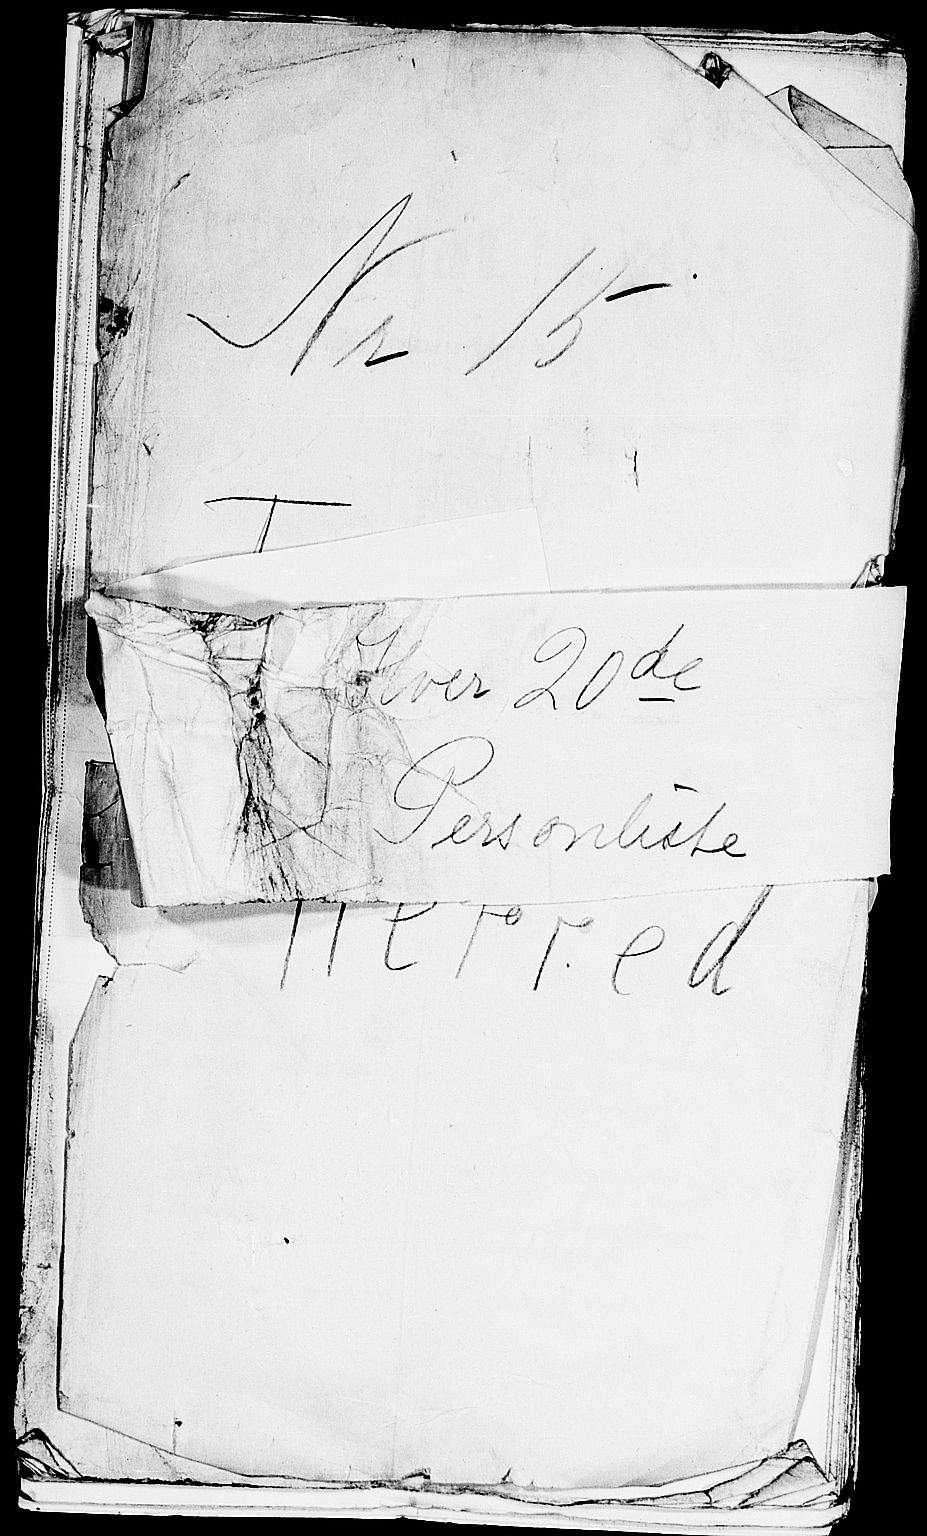 Nr 15
Hver 20de
Personliste
Herred